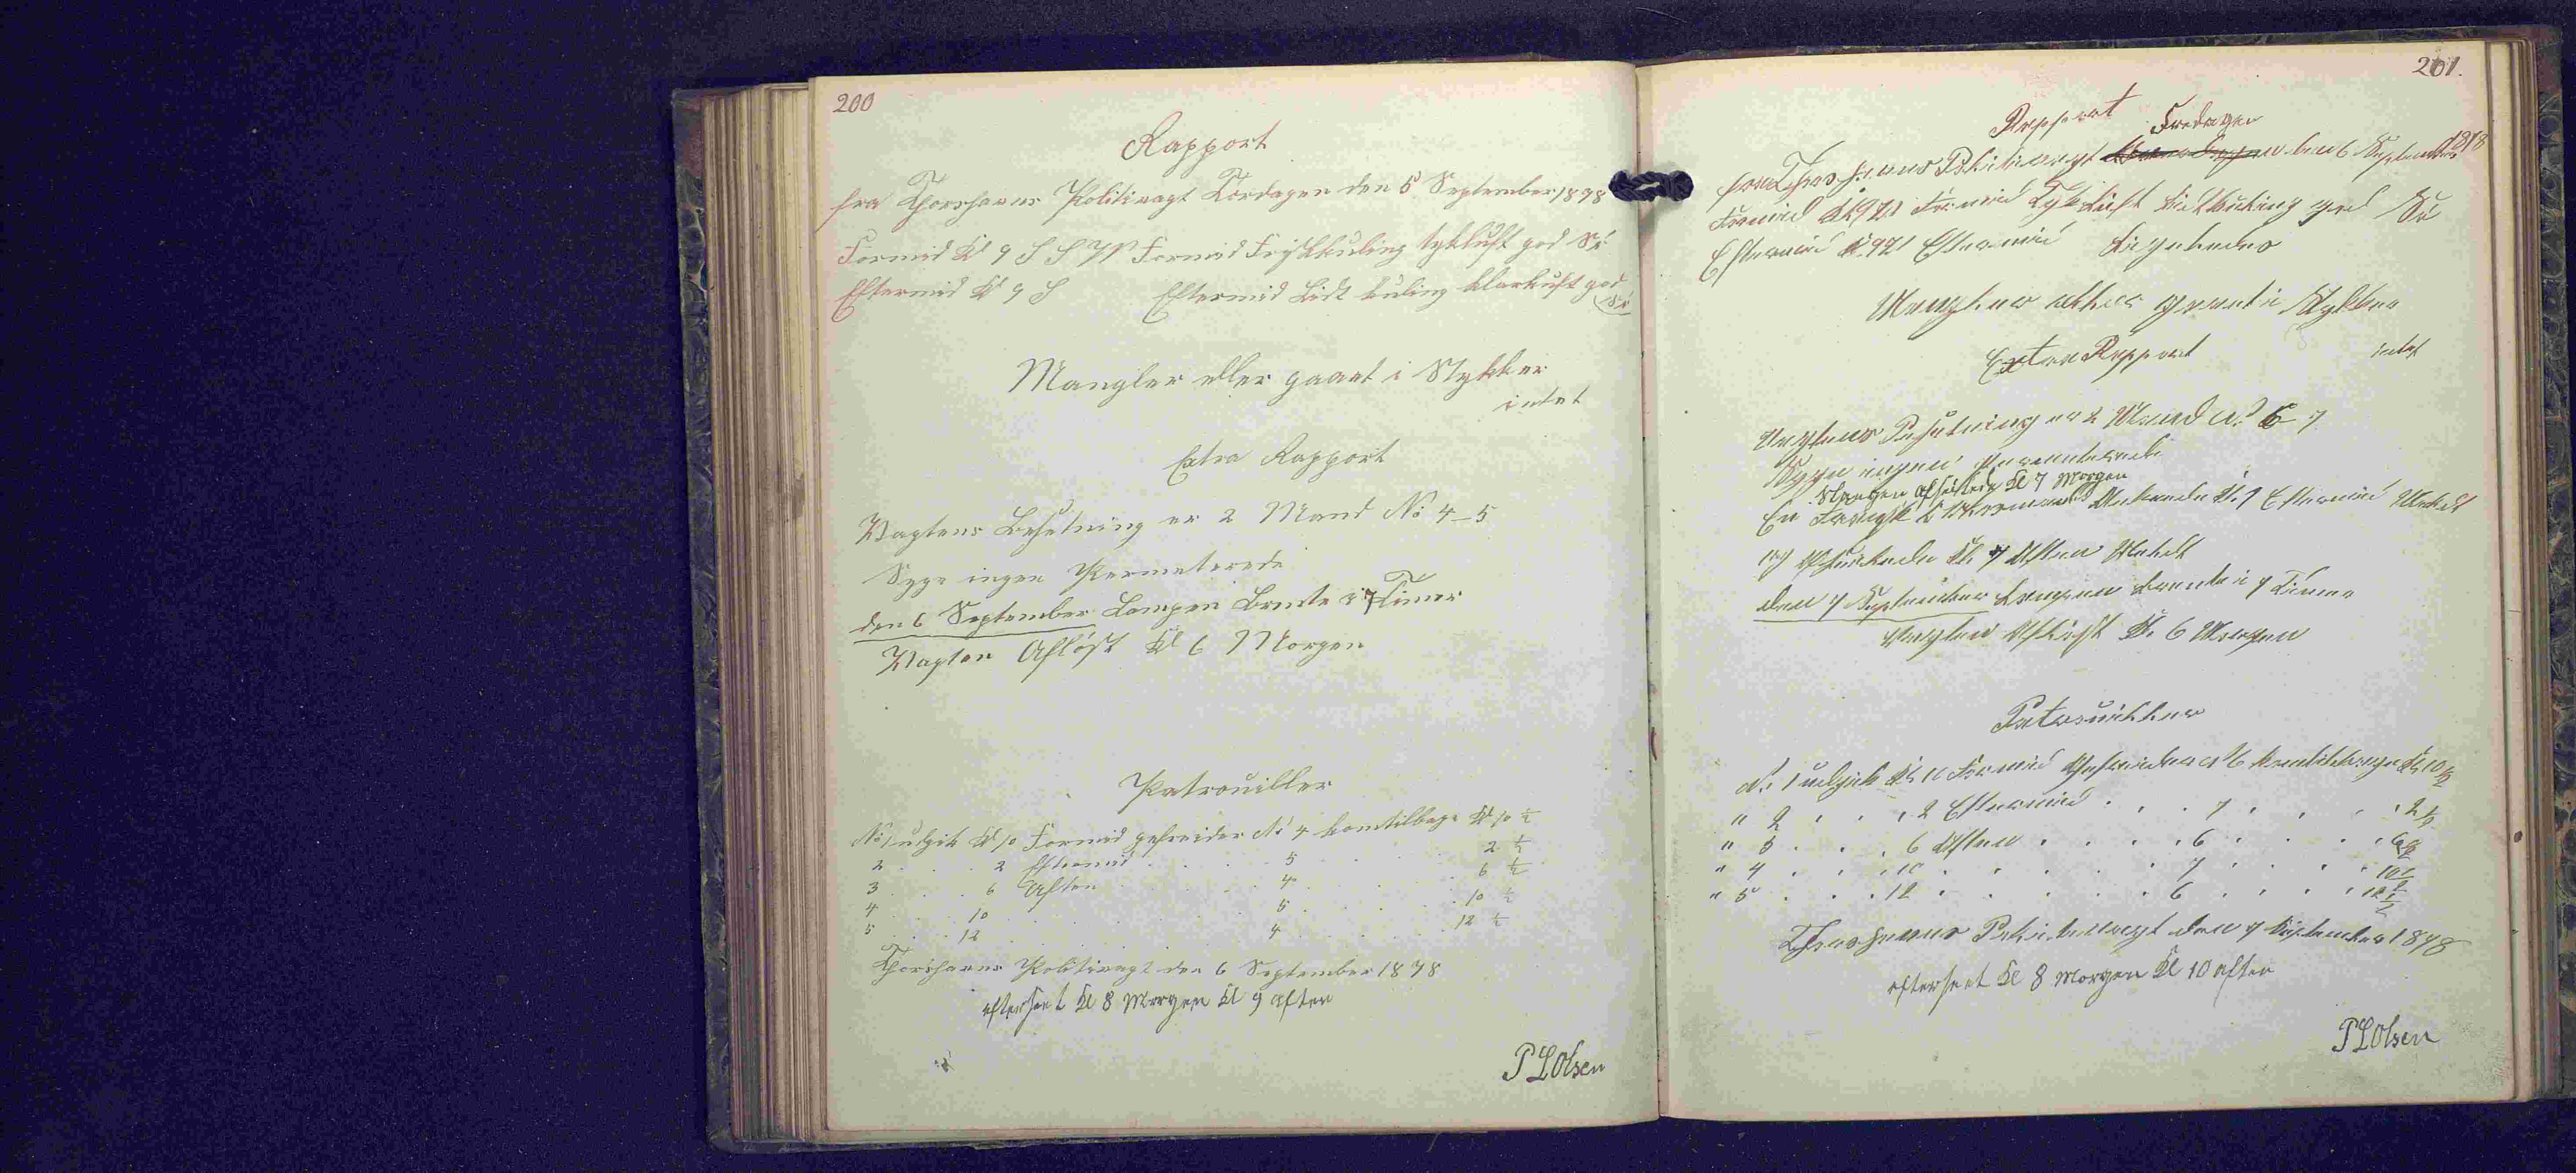 200
Rapport
fra Thorshavns Politivagt Torsdagen den 5 September 1878
Formid Kl 9 S S W Formid Frisk kuling tykluft god Sö
Eftermid Kl 9 S Eftermid Lidt kuling klarluft god
Sö
Mangler eller gaaet i Stykker
intet
Extra Rapport
Vagtens Besætning er 2 Mand No 4-5
Syge ingen Permeterede
den 6 September Lampen Brente i 7 Timer
Vagten Afløst Kl 6 Morgen
Patrouiller
No 1 udgik Kl 10 Formid gefreider No 4 kom tilbage Kl 10 ½
2 . . . 2 Eftermid . . . 5 . . . 2 ½
3 . . . 6 Aften . . . 4 . . . 6 ½
4 . . . 10 . . . 5 . . . 10 ½
5 . . . 12 . . . 4 . . . 12 ½
Thorshavns Politivagt den 6 September 1878
efterseet Kl 8 Morgen Kl 9 aften
P L Olsen
201.
Rapport
Fredagen
fra Thorshavns Politivagt den 6 September 1878
Formid Kl 9 Formid Tyk Luft Lidt kuling god Sö
Eftermid Kl 9 Eftermid Ligeledes
Mangler eller gaaet i Stykker
Extra Rapport intet
Vagtens Besætning er 2 Mand No 6 7
Syge ingen Permeterede
Slangen afsickede Kl 7 Morgen
En Fransk Ankrede Kl. 1 Eftermid
og Kl. 7 Aften
den 7 September Lampen brente i 7 Timer
Vagten Afløst Kl. 6 Morgen
Patrouiller
No 1 udgik Kl 10 Formid Gefreider No 6 kom tilbage Kl 10 ½
" 2 . . . 2 Eftermid . . . 7 . . . 2 ½
" 3 . . . 6 Aften . . . 6 . . . 6 ½
" 4 . . . 10 . . . 7 . . . 10 ½
" 5 . . . 12 . . . 6 . . . 12 ½
Thorshavns Politivagt den 7 September 1878
efterseet Kl 8 Morgen Kl 10 aften
P L Olsen